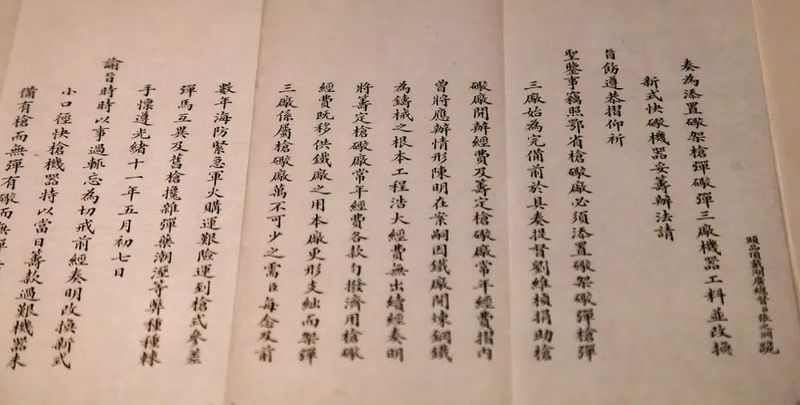 頭品頂戴湖廣總督臣張之洞跪
奏為添置礮架槍彈礮彈三廠機器工料並改換
新式快礮機器妥籌辦法請
旨飭遵恭摺仰祈
聖鑒事竊照鄂省槍礮廠必須添置礮架礮彈槍彈
三廠始為完備前於具奏提督劉維楨捐助槍
礮廠開辦經費及籌定槍礮廠常年經費摺內
曾將應辦情形陳明在案嗣因鐵廠開煉鋼鐵
為鑄械之根本工程浩大經費無出續經奏明
將籌定槍礮廠常年經費各款勻撥濟用槍礮
經費既移供鐵廠之用本廠更形支絀而架彈
三廠係屬槍礮廠萬不可少之需臣每念及前
數年海防緊急軍火購運艱險運到槍式參差
彈馬互異及舊槍攙雜彈藥潮溼等弊種種棘
手懍遵光緒十一年五月初七日
諭旨時時以事過輒忘為切戒前經奏明改換新式
小口徑快槍機器特以當日籌款過艱機器未
備有槍而無彈有礮而無彈